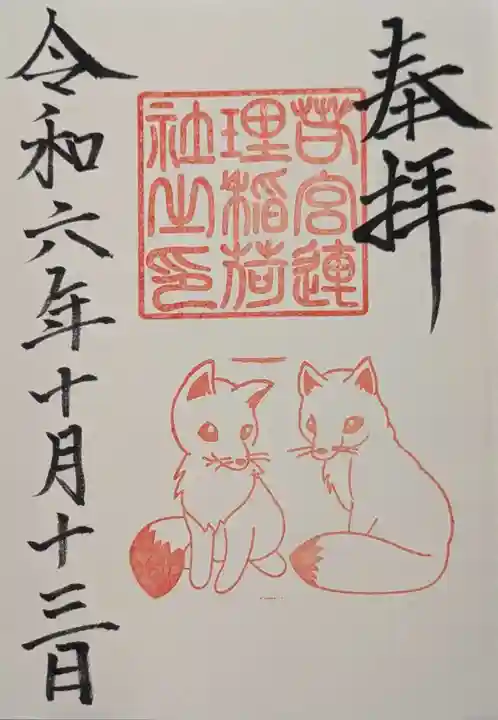 奉拝
若宮連
理稲荷
社之印
令和六年十月十三日